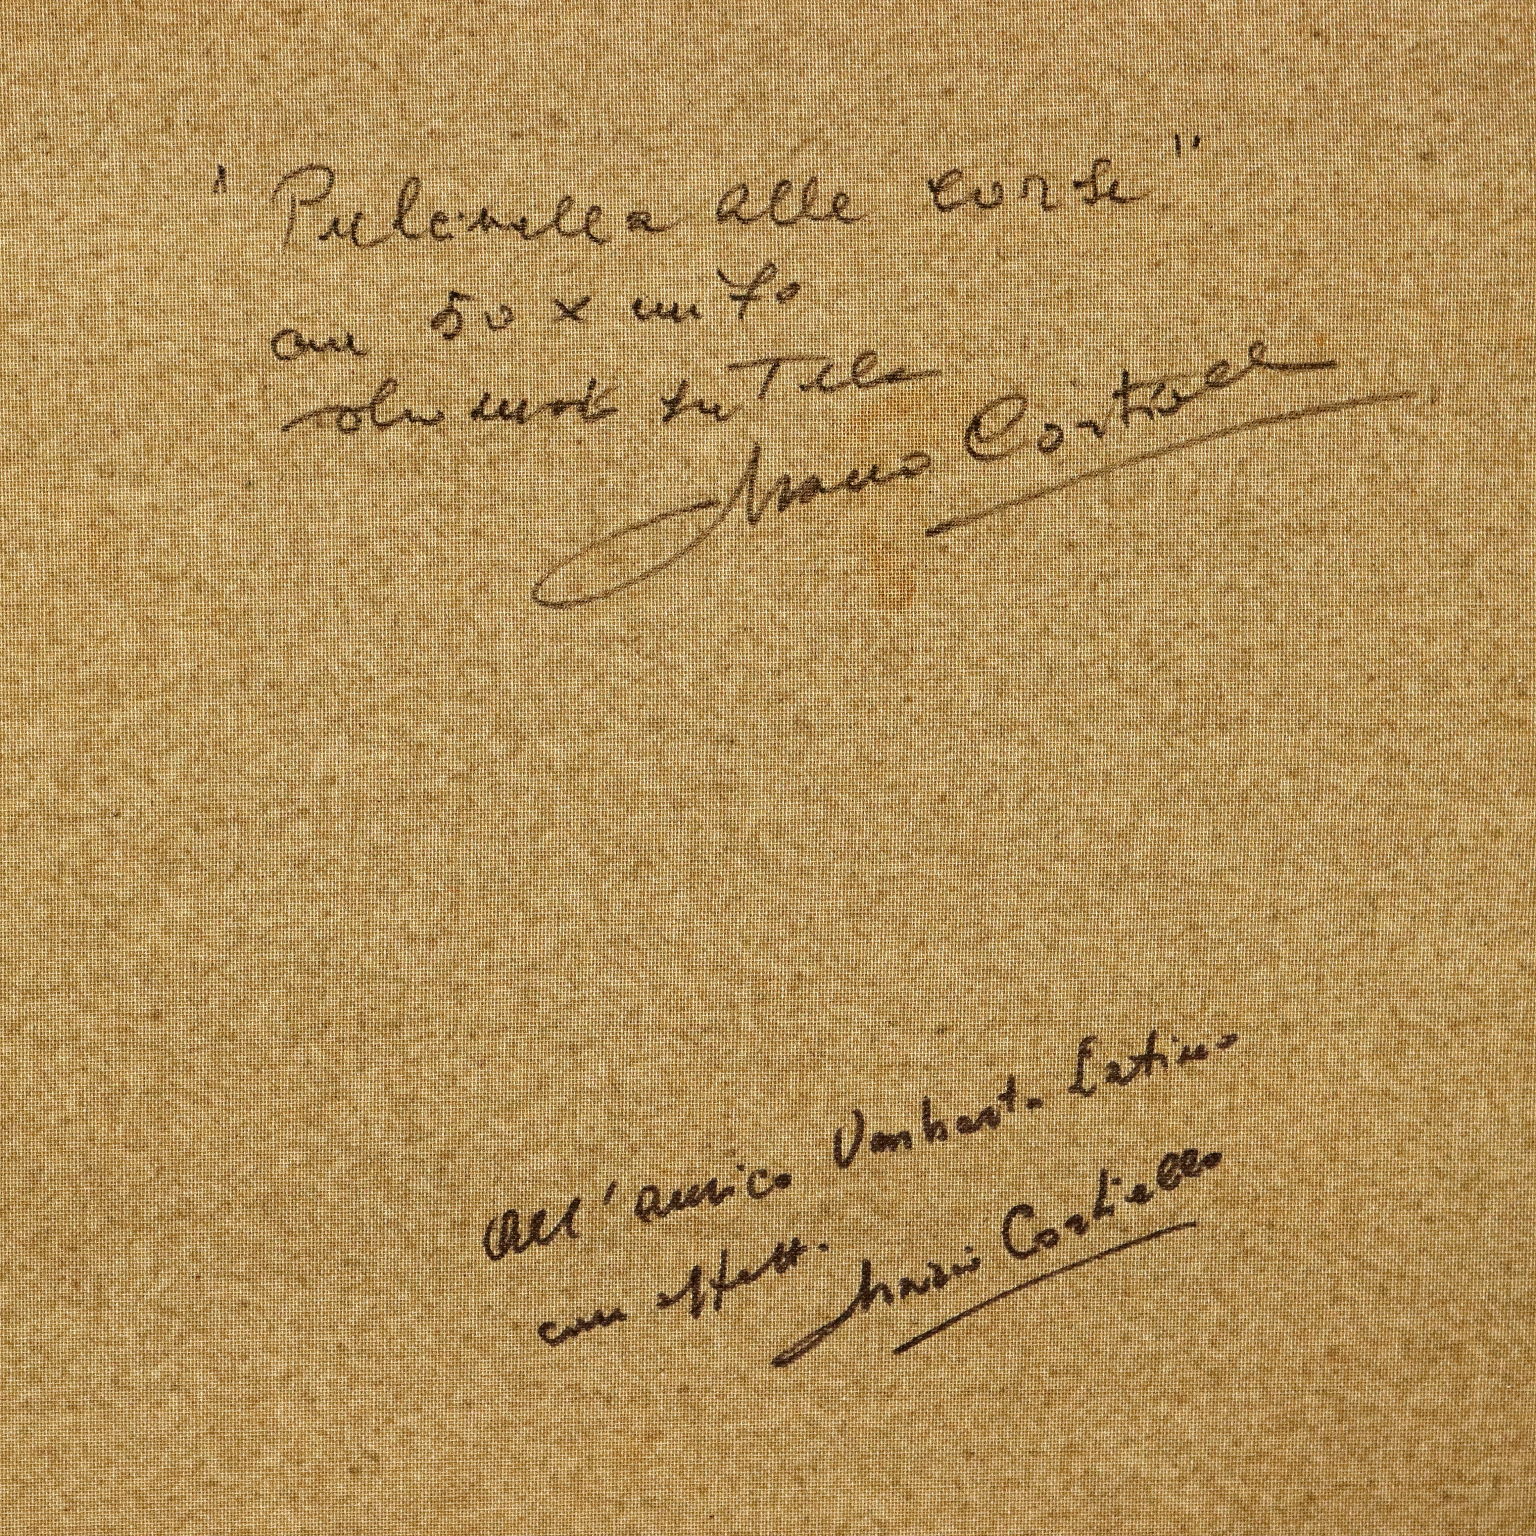 "Pulcinella alle corse"
cm 50 x cm 70
olio su Tela
Mario Cortiello
All'amico Umberto Latino
con affetto
Mario Cortiello